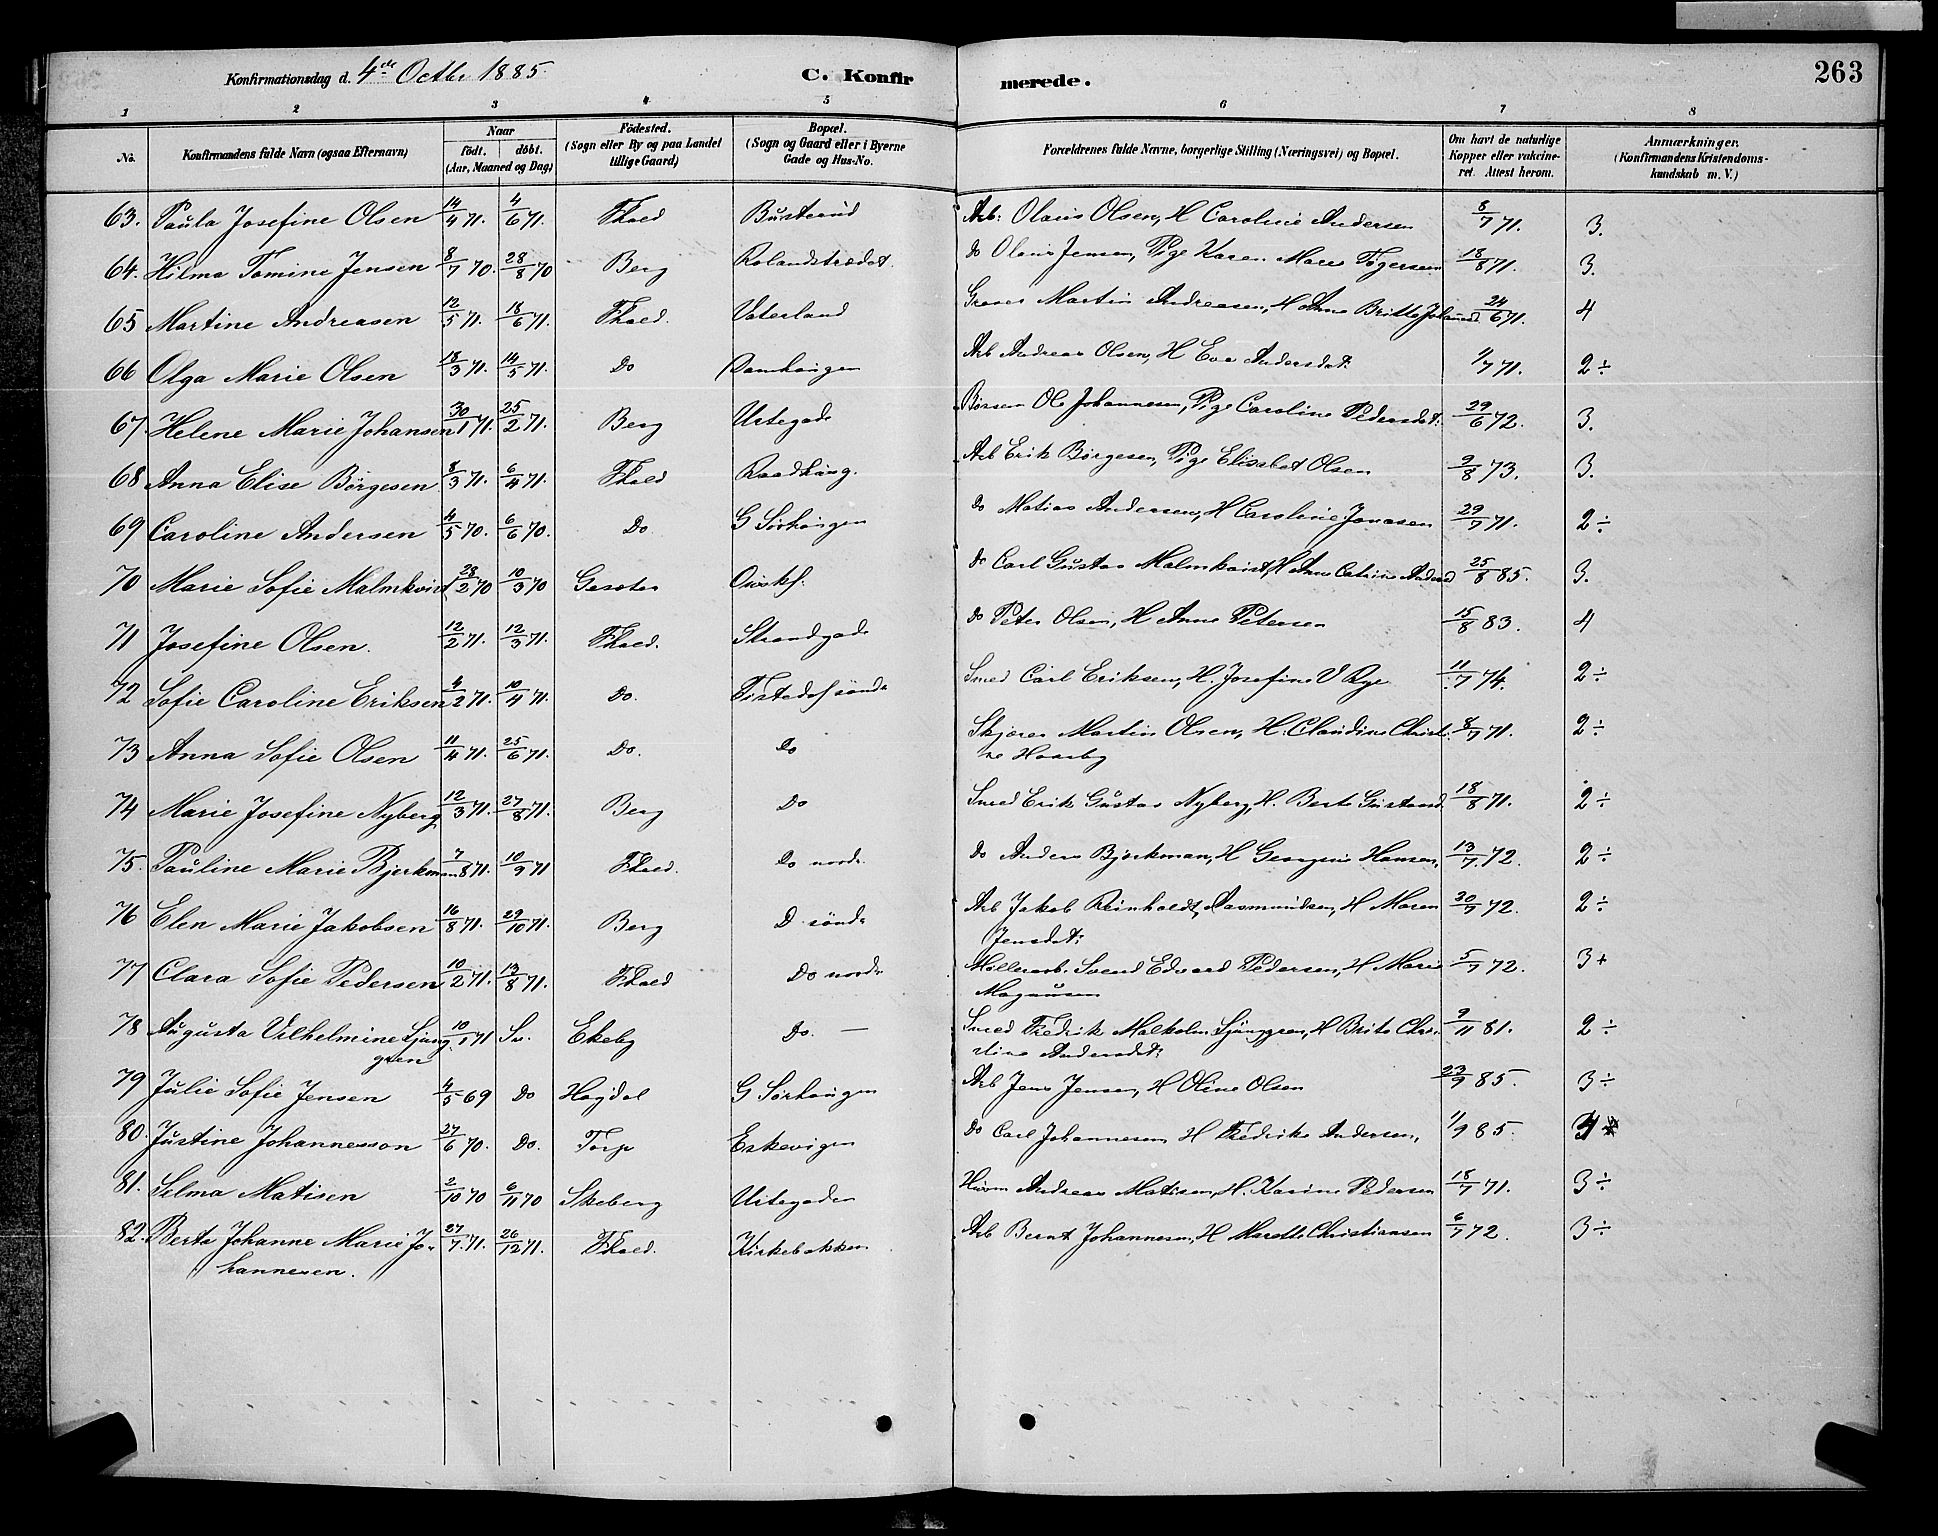 Konfirmationsdag d. 4de Octbr 1885. C. Konfirmerede. 263
1 2 3 4 5 6 7 8
No. Konfirmandens fulde Navn (ogsaa Efternavn) Naar født. døbt. (Aar, Maaned og Dag) Födested. (Sogn eller By og paa Landet tillige Gaard) Bopæl. (Sogn og Gaard eller i Byerne Gade og Hus-No. Forældrenes fulde Navne, borgerlige Stilling (Næringsvei) og Bopæl. Om havt de naturlige Kopper eller vakcineret. Attest herom. Anmærkninger. (Konfirmandens Kristendomskundskab m. V.)
63. Paula Josefine Olsen 14/4 71. 4/6 71. Fhald Busterud Arb: Olaus Olsen, H Caroline Andersen 8/7 71. 3.
64. Hilma Tomine Jensen 8/7 70. 28/8 70 Berg Rolandstrædet Do Olaus Jensen, Pige Karen Maren Tøgersen 18/8 71. 3.
65 Martine Andreasen 12/5 71. 18/6 71. Fhald. Vaterland Martin Andreasen, H Anne Britta 24/6 71. 4
66 Olga Marie Olsen 18/3 71. 14/5 71. Do Damhaugen Arb Andreas Olsen, H Eva Andersdat: 1/7 71. 2÷
67. Helene Marie Johansen 30/1 71. 25/2 71. Berg Urtegade Ole Johannesen, Pige Caroline Pedersdat: 29/6 72. 3.
68 Anna Elise Börgesen 8/3 71. 6/4 71. Fhald Raadhusg. Arb Erik Börgesen, Pige Elisabet Olsen 9/8 73. 3.
69 Caroline Andersen 4/5 70. 6/6 70. Do. G Sörhaugen Do Matias Andersen, H Caroline Jonasen 29/7 71. 2÷
70 Marie Sofie Malmkvist 28/2 70 10/3 70 Do Carl Gustav Malmkvist, H Anne Catrine 25/8 85. 3.
71 Josefine Olsen. 12/2 71. 12/3 71. Fhald. Strandgade Do Peter Olsen, H Anne Petersen 15/8 83. 4
72 Sofie Caroline Eriksen 4/2 71. 10/4 71. Do. Tistedal sönde Smed Carl Eriksen, H. Josefine V Rye 11/7 74. 2÷
73 Anna Sofie Olsen 11/4 71. 25/6 71. Do. Do Skjærer Martin Olsen, H. Claudine Christi- 8/7 71. 2÷
ne Haaby
74 Marie Josefine Nyberg 12/3 71. 27/8 71. Berg Do Smed Erik Gustav Nyberg, H. Berta 18/8 71. 2÷
75. Pauline Marie Bjerkman 7/8 71. 10/9 71 Fhald. Do nord. Do Anders Bjørkman, H Georgine Hansen, 13/7 72. 2÷
76 Elen Marie Jakobsen 16/8 71. 29/10 71. Berg D. sönde Arb Jakob Reinholdt Rasmundsen, H Maren 30/7 72. 2÷
Jensdat:
77 Clara Sofie Pedersen 10/2 71. 13/8 71. Fhald Do nord Møllerarb. Svend Edvard Pedersen, H Marie 5/7 72. 3+
Magnusen
78 Augusta Vilhelmine Ljung- 10/1 71 Sv. Ekeby Do. — Smed Fredrik Malkolm Ljunggren, H Brita Chri- 9/11 81. 2÷
gren stine Andersdat:
79 Julie Sofie Jensen 4/5 69 Do Høgdal G Sörhaugen Arb Jens Jensen, H Oline Olsen 23/9 85. 3÷
80. Justine Johannesson 27/6 70. Do. Torp Eskevigen Do Carl Johannesen, H Fredrike Andersen, 1/9 85.
81. Selma Matisen 2/10 70 6/11 70 Skeberg Urtegaden Andreas Matisen, H. Karine Pedersen 18/7 71. 3÷
82. Berta Johanne Marie Jo- 27/7 71. 26/12 71. Fhald. Kirkebakken Arb Bernt Johannesen, H Marette Christiansen 6/7 72. 3÷
hannesen.